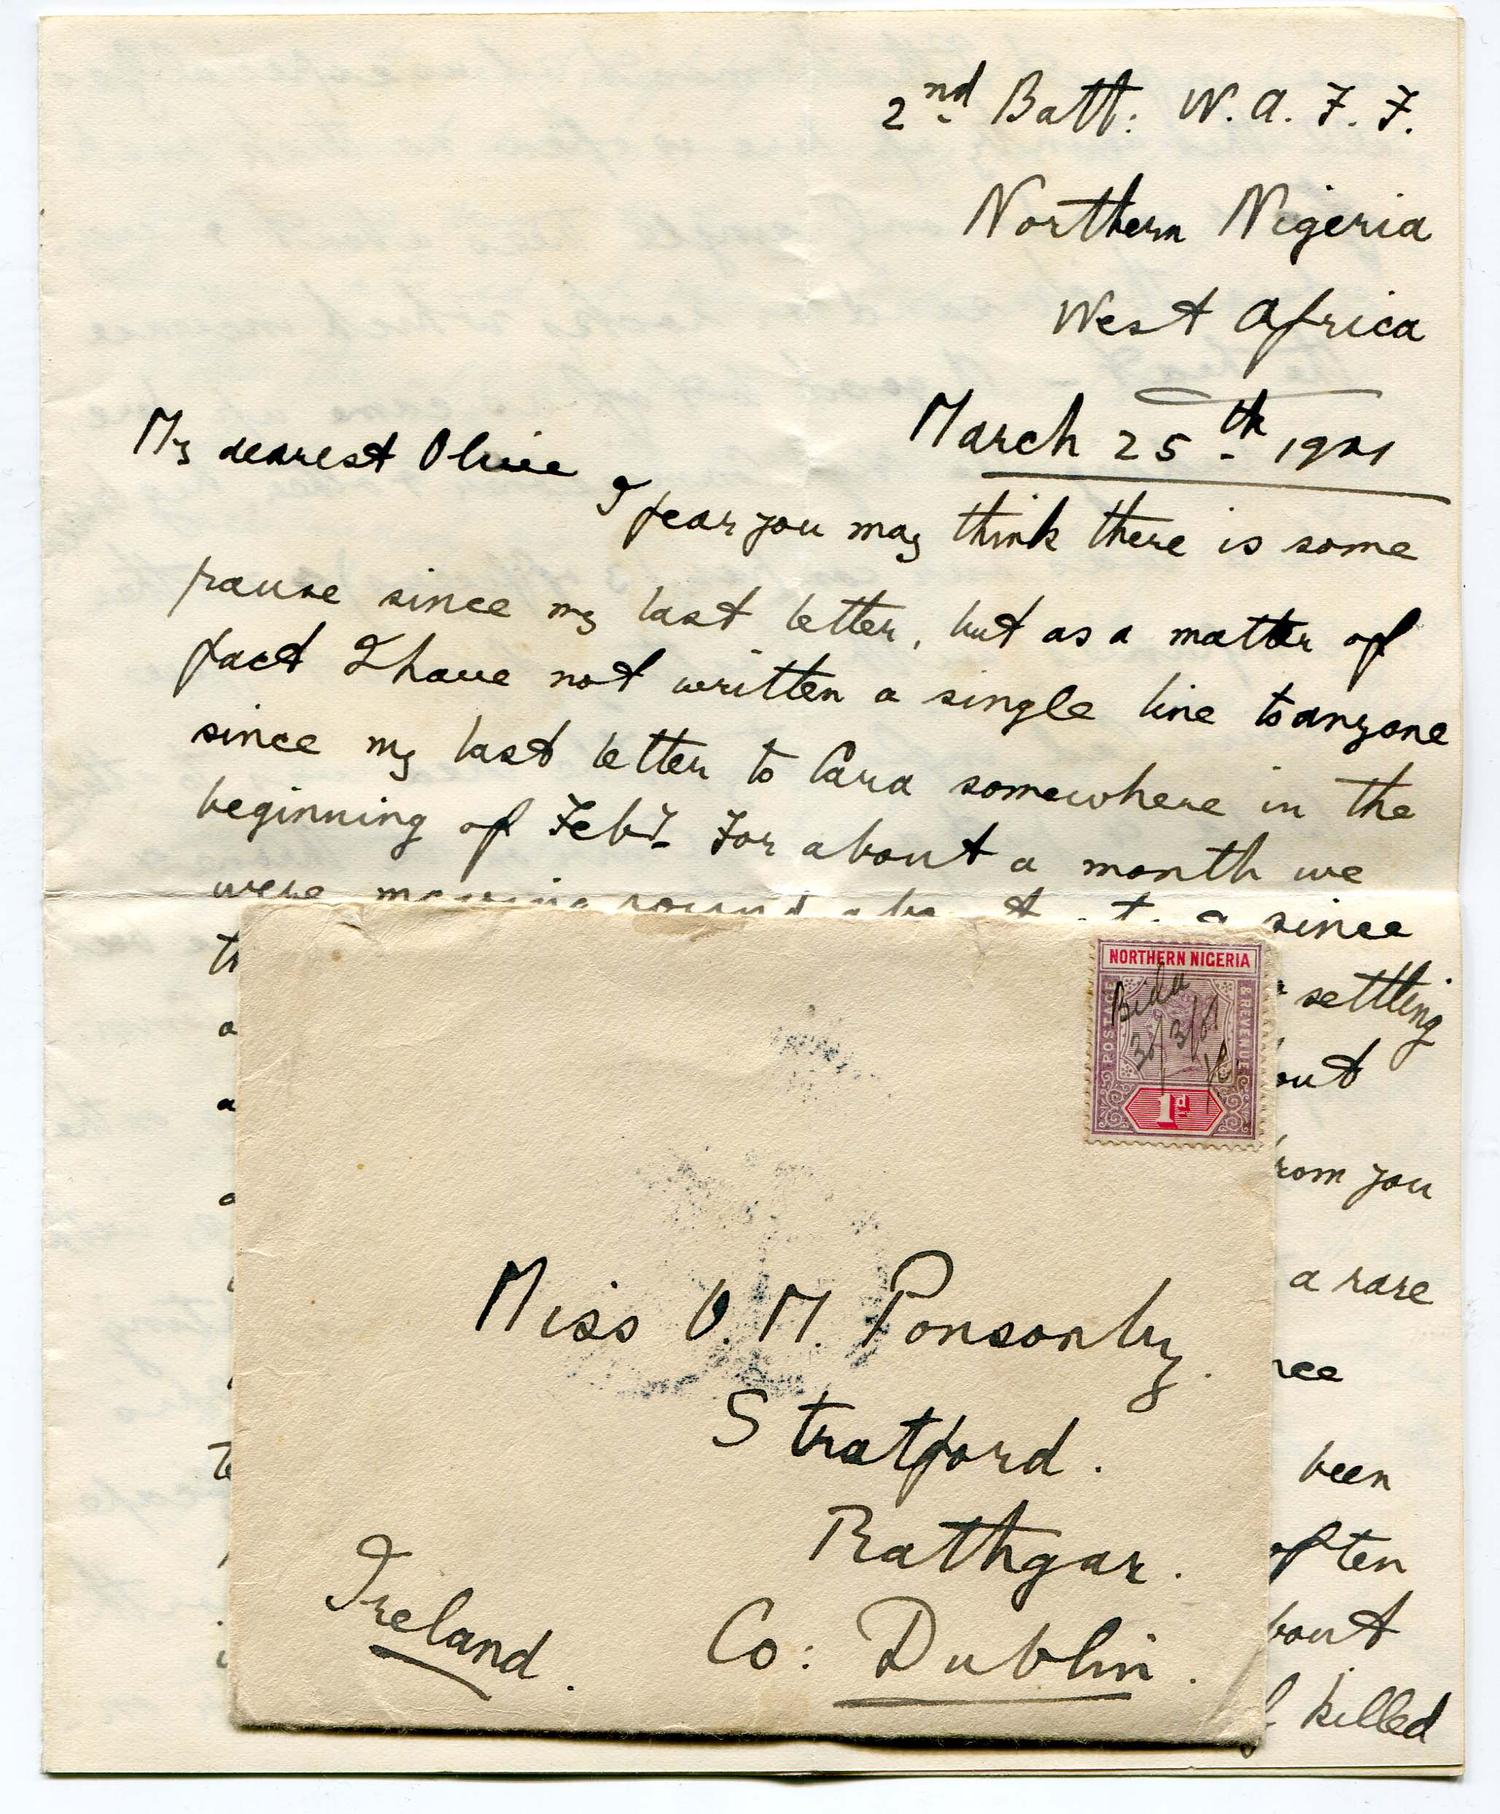 2nd Batt: W. A. F. F.
Northern Nigeria
West Africa
March 25th 1901
My dearest Olive
I fear you may think there is some
pause since my last letter, but as a matter of
fact I have not written a single line to anyone
since my last letter to Cara somewhere in the
beginning of Feby. For about a month we
were moving round about since
settling
out
from you
a rare
been
often
bout
killed
NORTHERN NIGERIA
POSTAGE
& REVENUE
1d
Bida
30/3/01
Miss O. M. Ponsonby.
Stratford.
Rathgar.
Co: Dublin.
Ireland.